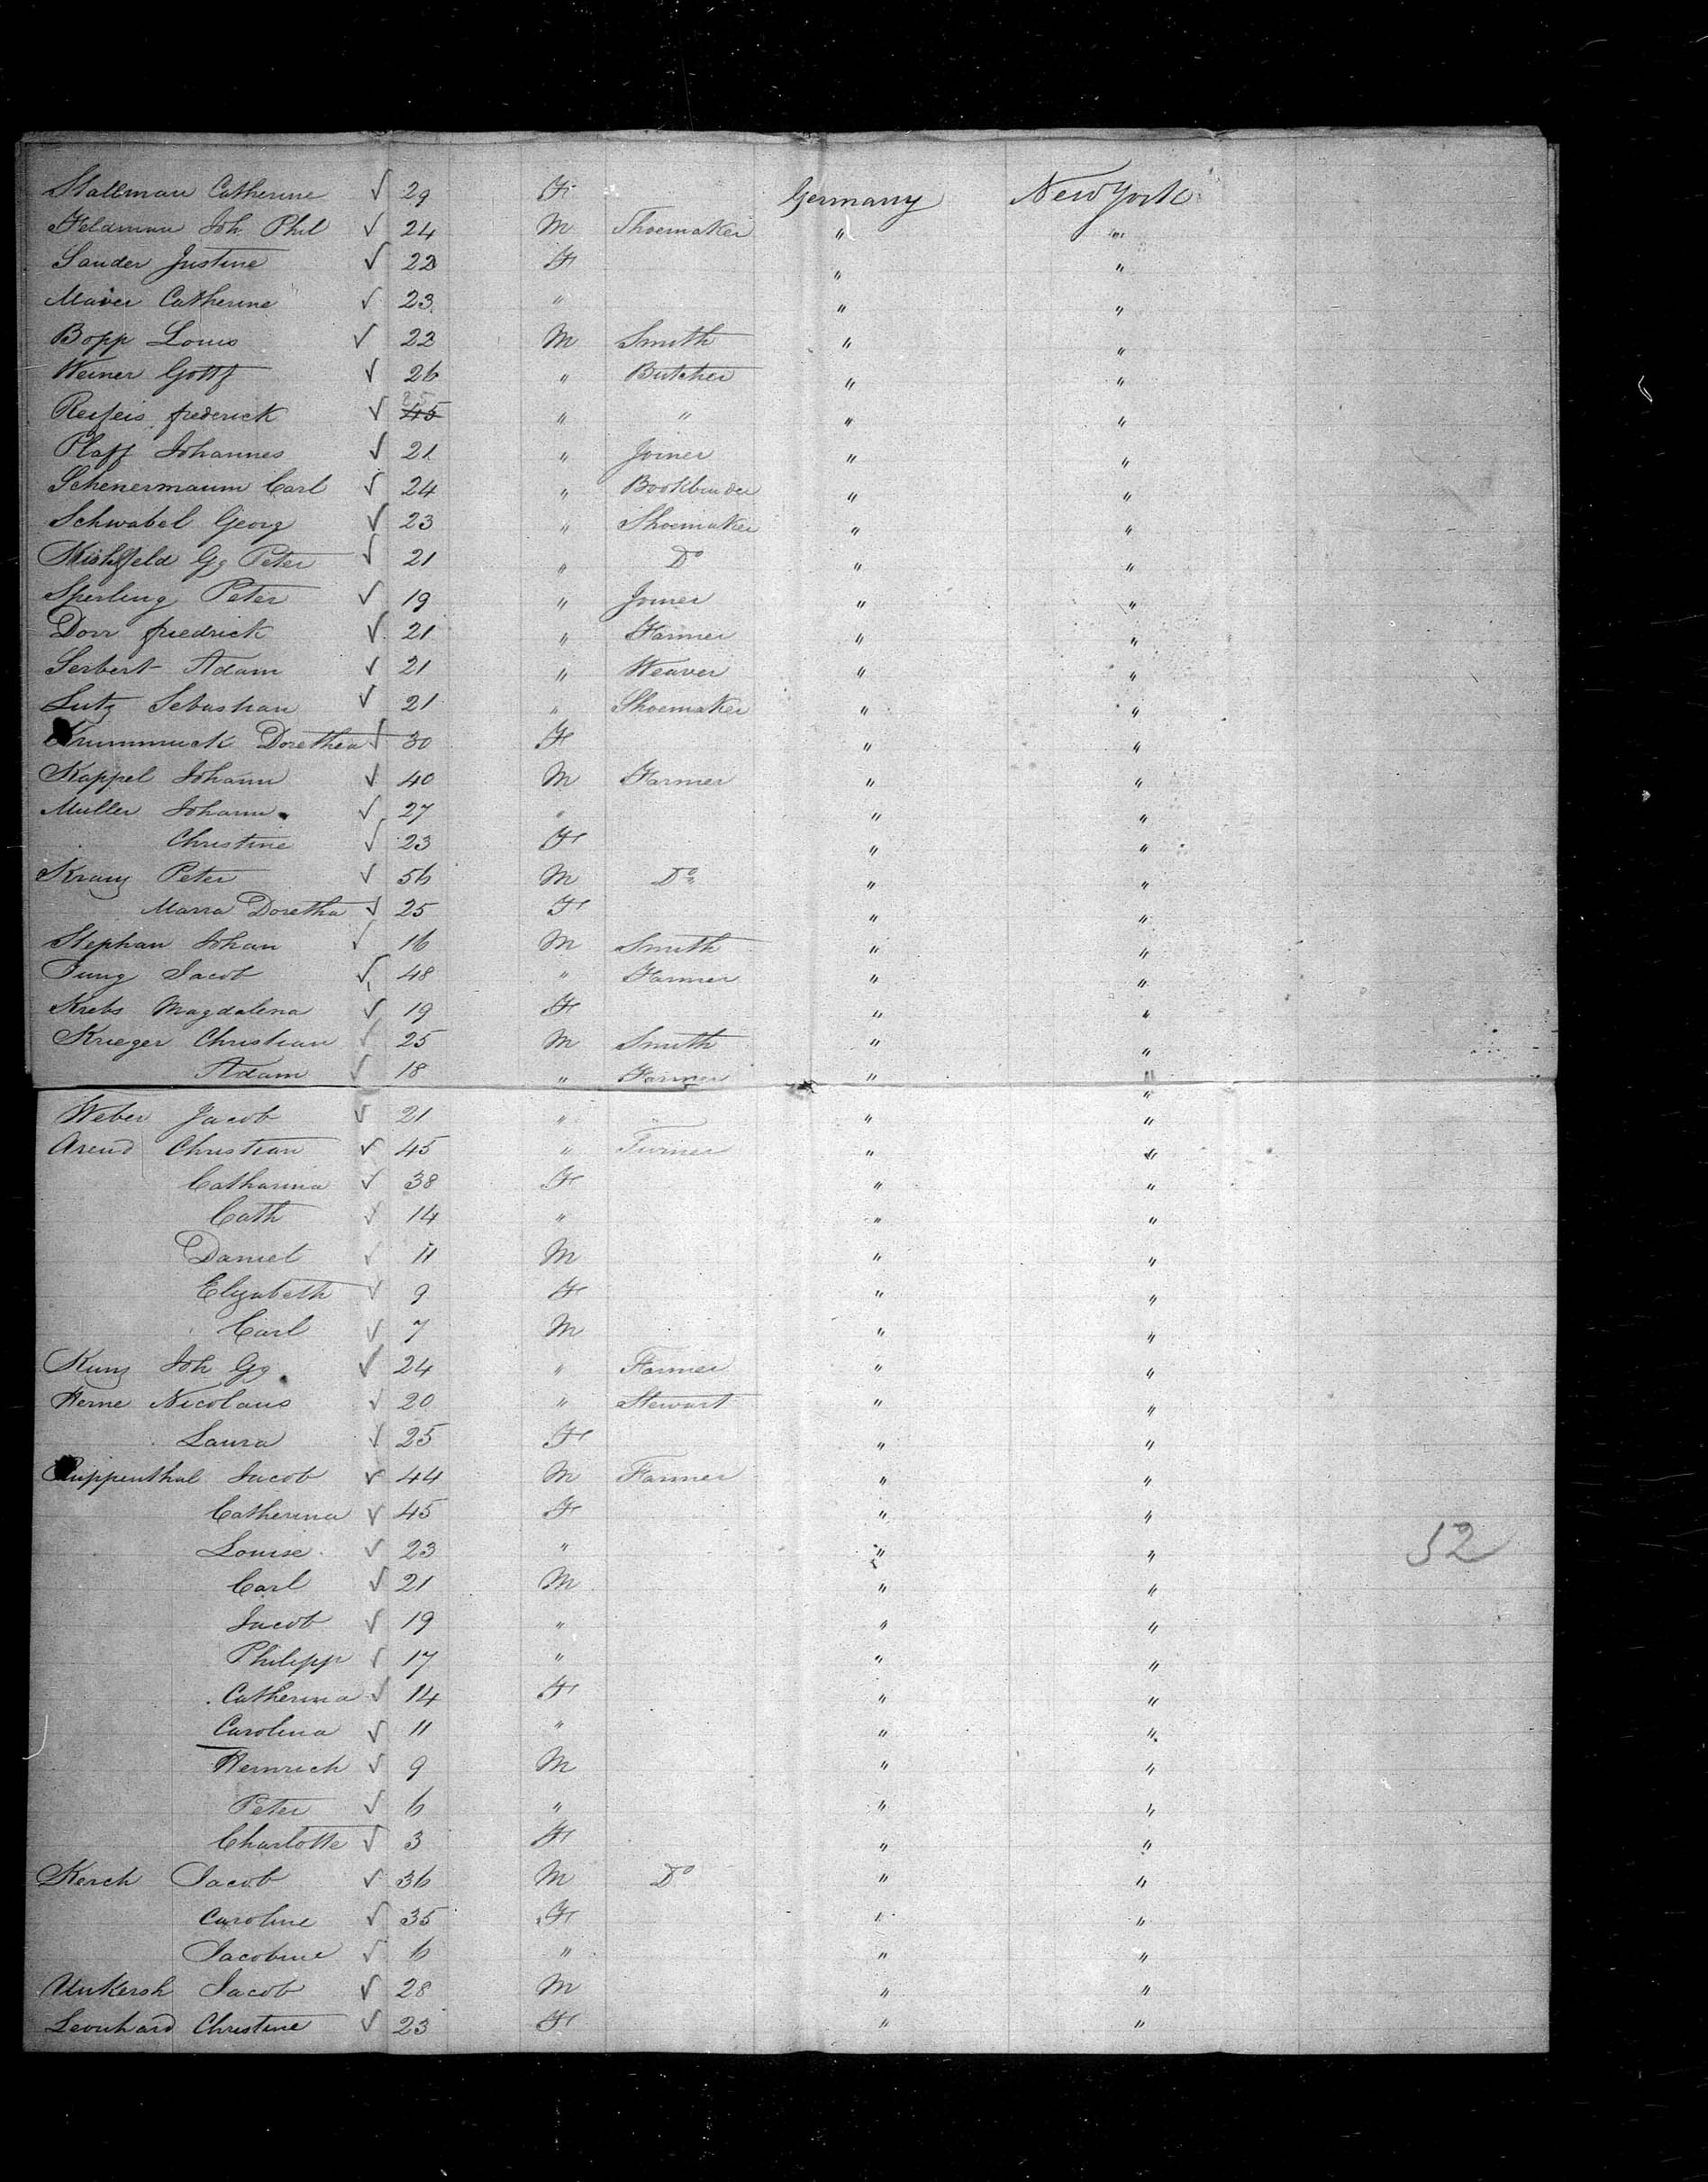 Stallman Catherine √ 29 F Germany New York
Feldman Joh Phil √ 24 M Shoemaker " "
Sander Justine √ 22 F " "
Maier Catherine √ 23 " " "
Bopp Louis √ 22 M Smith " "
Weiner Gottf √ 26 " Butcher " "
Reifeis frederick √ 45 " " " "
Plaff Johannes √ 21 " Joiner " "
Schenermaum Carl √ 24 " Bookbinder " "
Schwabel Georg √ 23 " Shoemaker " "
Gg Peter √ 21 " Do " "
Sperling Peter √ 19 " Joiner " "
Dorr fredrick √ 21 " Farmer " "
Serbert Adam √ 21 " Weaver " "
Lutz Sebastian √ 21 " Shoemaker " "
Krummuck Dorethea √ 30 F " "
Kappel Johann √ 40 M Farmer " "
Muller Johann √ 27 " " "
Christine √ 23 F " "
Kranz Peter √ 56 M Do " "
Maria Doretha √ 25 F " "
Stephan Johan √ 16 M Smith " "
Jung Jacob √ 48 " Farmer " "
Krebs Magdalena √ 19 F " "
Krieger Christian √ 25 M Smith " "
Adam √ 18 " Farmer " "
"
Weber Jacob √ 21 " " "
Arend Christian √ 45 " Turner " "
Catharina √ 38 F " "
Cath √ 14 " " "
Daniel √ 11 M " "
Elizabeth √ 9 F " "
Carl √ 7 M " "
Kunz Joh Gg √ 24 " Farmer " "
Herne Nicolaus √ 20 " Stewart " "
Laura √ 25 F " "
Ruppenthal Jacob √ 44 M Farmer " "
Catherina √ 45 F " "
Louise √ 23 " " "
Carl √ 21 M " "
Jacob √ 19 " " "
Philipp √ 17 " " "
Catherina √ 14 F " "
Carolina √ 11 " " "
Heinrich √ 9 M " "
Peter √ 6 " " "
Charlotte √ 3 F " "
Kerch Jacob √ 36 M Do " "
Caroline √ 35 F " "
Jacobine √ 6 " " "
Jacob √ 28 M " "
Leonhard Christine √ 23 F " "
52